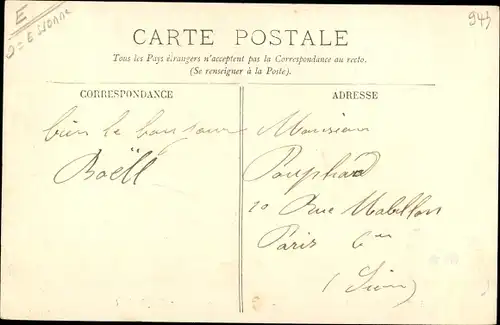 E
D = Essonne
945
CARTE POSTALE
Tous les Pays étrangers n'acceptent pas la Correspondance au recto.
(Se renseigner à la Poste).
CORRESPONDANCE
bien le bonjour
Boëll
ADRESSE
Monsieur
10 Rue Mabillon
Paris 6me
(Seine)